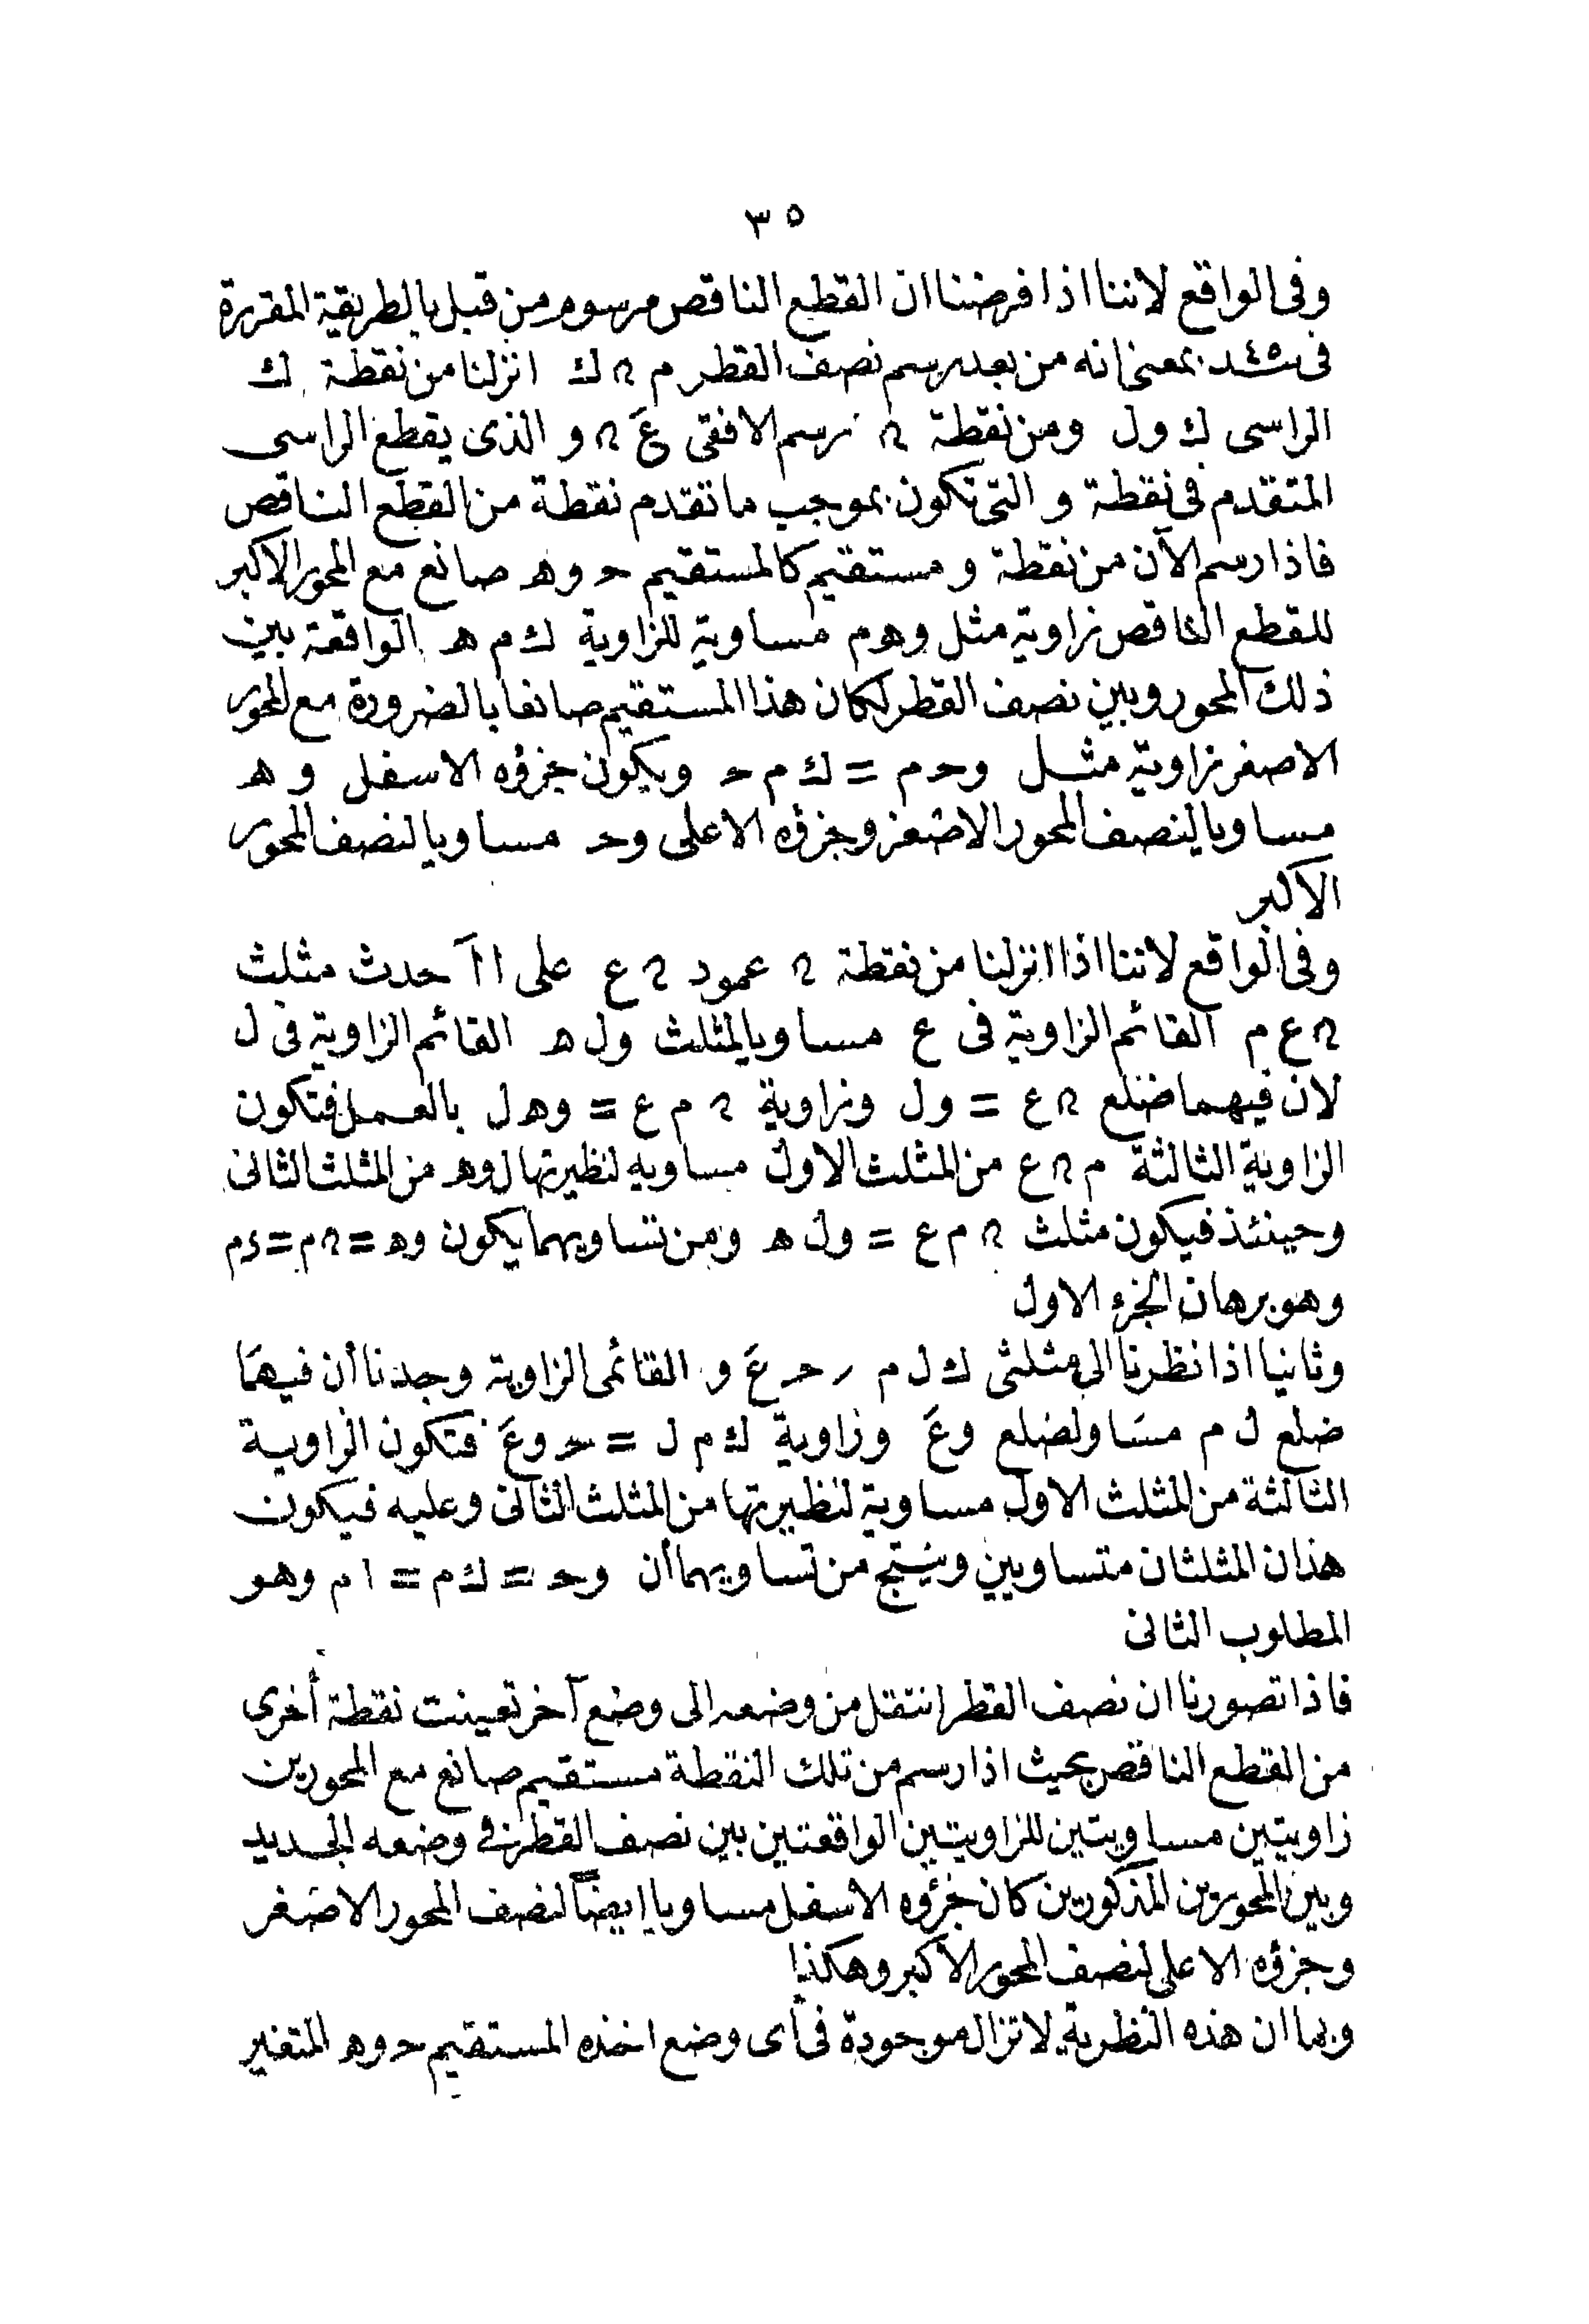 ٣٥
وفى الواقع لاننا اذا فرضنا ان القطع الناقص مرسوم من قبل بالطريقة المقررة
فى بمعنى انه من بعد رسم نصف القطر م ﮞ ك انزلنا من نقطة ك
الراسى ك ول ومن نقطة ﮞ نرسم الافقى عَ ﮞ و الذى يقطع الراسى
المتقدم فى نقطة و التى تكون بموجب ما تقدم نقطة من القطع الناقص
فاذا رسم الآن من نقطة و مستقيم كالمستقيم حـ وهـ صانع مع المحور الاكبر
للقطع الناقص زاوية مثل وهم مساوية للزاوية ك م هـ الواقعة بين
ذلك المحور وبين نصف القطر لكان هذا المستقيم صانعا بالضرورة مع المحور
الاصغر زاوية مثل وحم = ك م حـ ويكون جزؤه الاسفل و هـ
مساويا لنصف المحور الاصغر وجزؤه الاعلى وحـ مساويا لنصف المحور
الاكبر
وفى الواقع لاننا اذا انزلنا من نقطة ﮞ عمود ﮞ ع على ا اَ حدث مثلث
ﮞ ع م القائم الزاوية فى ع مساويا لمثلث ول هـ القائم الزاوية فى ل
لان فيهما ضلع ﮞ ع = ول وزاوية ﮞ م ع = وهـ ل بالعمل فتكون
الزاوية الثالثة م ﮞ ع من المثلث الاول مساويه لنظيرتها ل وهـ من المثلث الثانى
وحينئذ فيكون مثلث ﮞ م ع = ول هـ ومن تساويهما يكون وهـ = ﮞ م = ءم
وهو برهان الجزء الاول
وثانيا اذا نظرنا الى مثلثى ك ل م ر حـ عَ و القائمى الزاوية وجدنا أن فيهما
ضلع ل م مساو لضلع وعَ وزاوية ك م ل = حـ وعَ فتكون الزاوية
الثالثة من المثلث الاول مساوية لنظيرتها من المثلث الثانى وعليه فيكون
هذان المثلثان متساويين وينتج من تساويهما أن وحـ = ك م = ا م وهو
المطلوب الثانى
فاذا تصورنا ان نصف القطر انتقل من وضعه الى وضع آخر تعينت نقطة أخرى
من القطع الناقص بحيث اذا رسم من تلك النقطة مستقيم صانع مع المحورين
زاويتين مساويتين للزاويتين الواقعتين بين نصف القطر فى وضعه الجديد
وبين المحورين المذكورين كان جزؤه الاسفل مساويا ايضاً لنصف المحور الاصغر
وجزؤه الاعلى لنصف المحور الاكبر وهكذا
وبما ان هذه النظرية لا تزال موجودة فى أى وضع اخذه المستقيم حـ وهـ المتغير